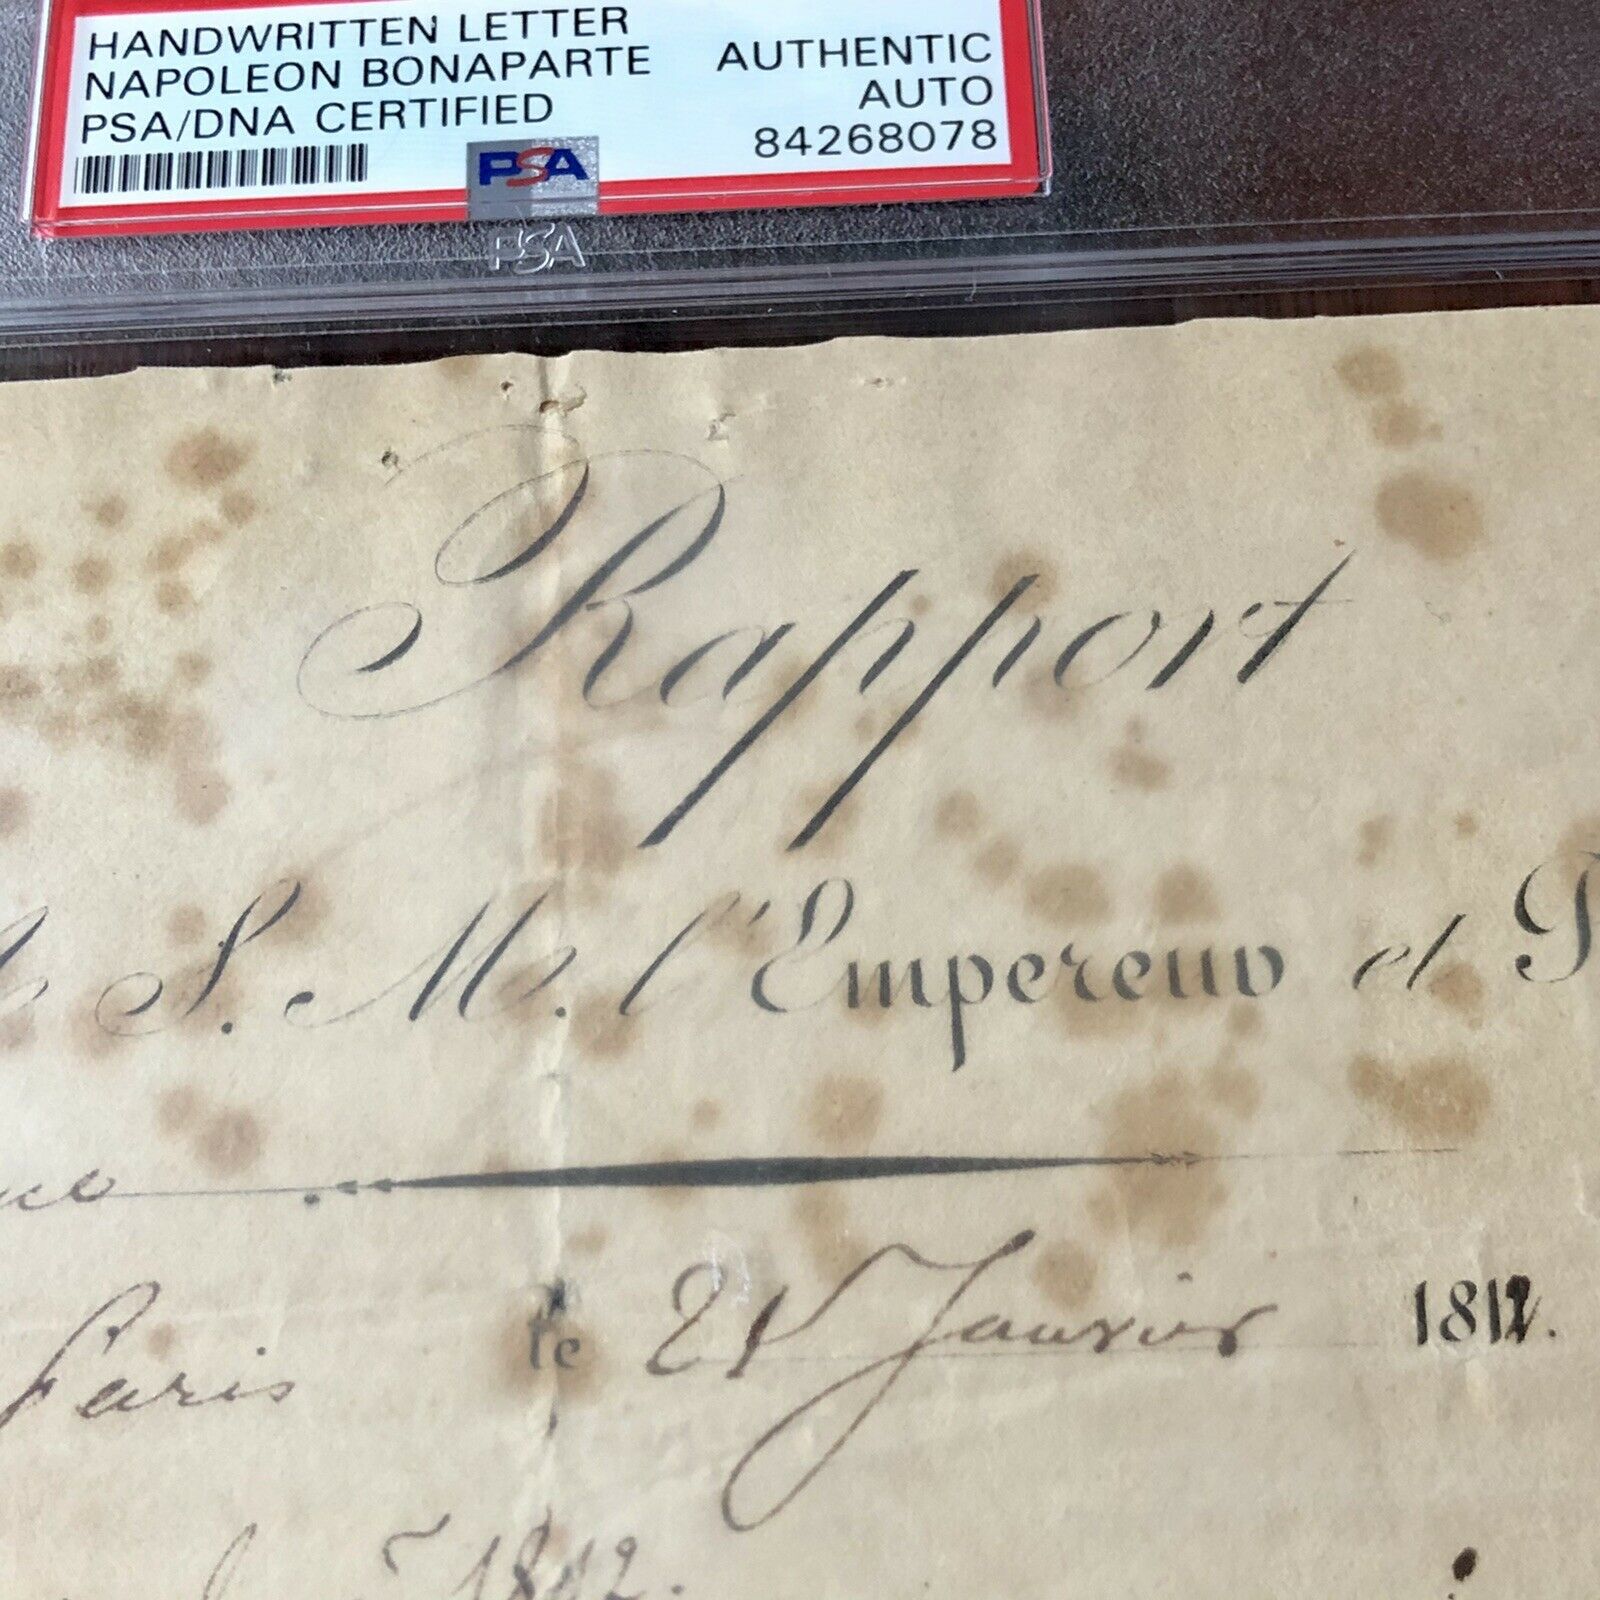 HANDWRITTEN LETTER
NAPOLEON BONAPARTE
PSA/DNA CERTIFIED
AUTHENTIC
AUTO
84268078
PSA
PSA
Rapport
A S. M. l'Empereur et
Paris le 21 Janvier 1812.
1812.